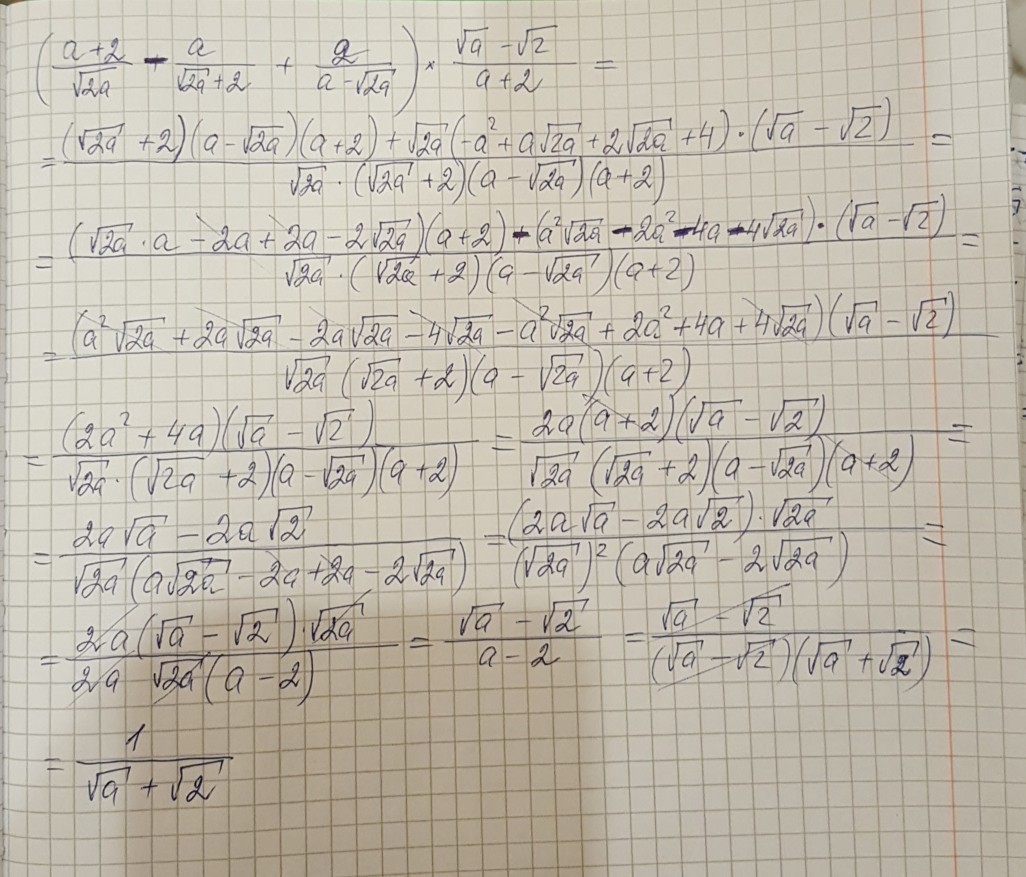 (a+2/√2a − a/(√2a+2) + 2/(a−√2a)) × (√a −√2)/(a+2) =
= ((√2a +2)(a−√2a)(a+2) + √2a(−a²+a√2a+2√2a+4)·(√a −√2))/(√2a·(√2a+2)(a−√2a)(a+2)) =
= ((√2a·a −2a+2a−2√2a)(a+2) − (a²√2a −2a²−4a−4√2a)·(√a−√2))/(√2a·(√2a+2)(a−√2a)(a+2)) =
= ((a²√2a +2a√2a −2a√2a −4√2a −a²√2a +2a²+4a+4√2a)(√a −√2))/(√2a(√2a+2)(a−√2a)(a+2))
= ((2a²+4a)(√a −√2))/(√2a·(√2a +2)(a−√2a)(a+2)) = (2a(a+2)(√a −√2))/(√2a(√2a+2)(a−√2a)(a+2)) =
= (2a√a −2a√2)/(√2a(a√2a −2a+2a−2√2a)) = ((2a√a−2a√2)·√2a)/((√2a)²(a√2a −2√2a)) =
= (2a(√a −√2)·√2a)/(2a √2a(a−2)) = (√a −√2)/(a−2) = (√a −√2)/((√a −√2)(√a +√2)) =
= 1/(√a +√2)